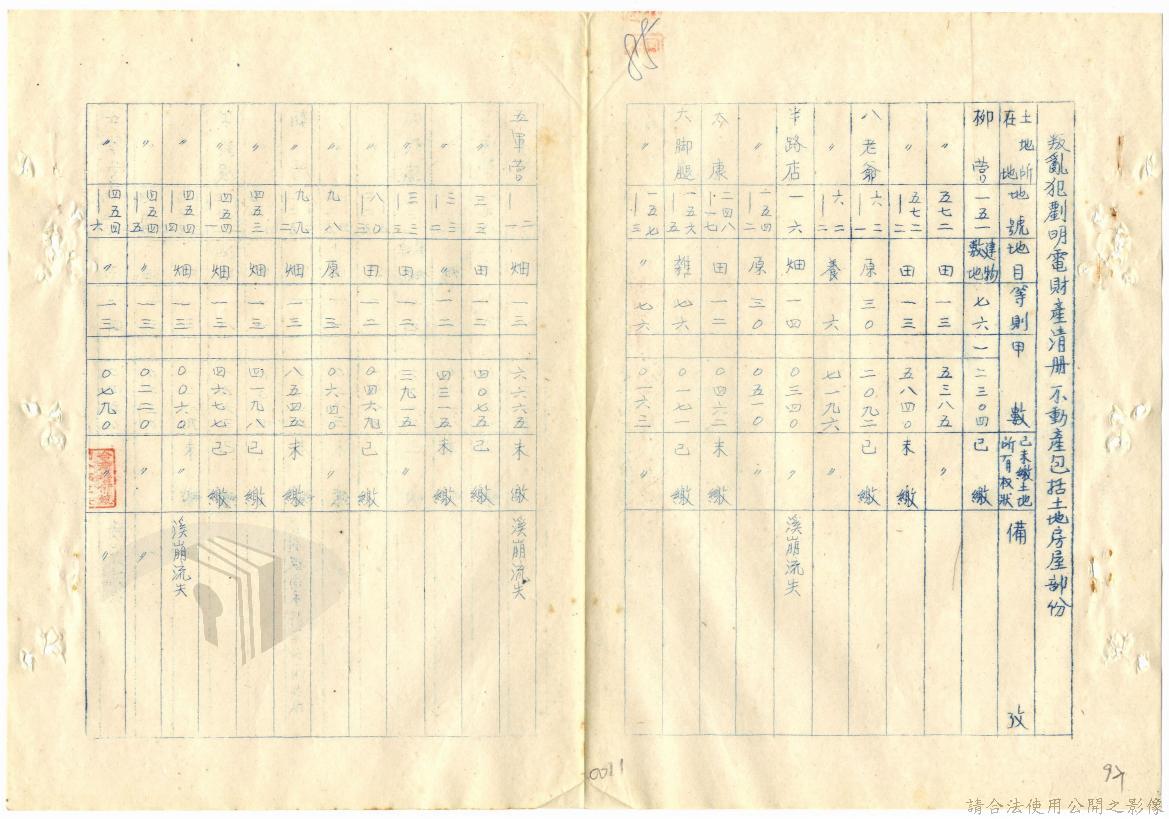 叛亂犯劉明電財產清册 不動產包括土地房屋部份
土地所在地 地號 地目 等則 甲數 已未繳土地所有权狀 備攷
柳營 一五一 建物敷地 七六 一二三〇四 已繳
〃 五七二 田 一三 五三八五 〃
〃 五七二|二 田 一三 五八四〇 未繳
八老爺 六二|一 原 三〇 二〇九二 已繳
〃 六二|二 養 六 七一九六 〃
半路店 一六 畑 一四 〇三四〇 〃 溪崩流失
〃 一五四|二 原 三〇 〇五一〇 〃
本康 二四八|一七 田 一二 〇四六二 未繳
六脚腿 一五六|五 雜 七六 〇一七一 已繳
〃 一五七|三 〃 七六 〇一六三 〃
五軍營 二|一 畑 一三 六六六五 未繳 溪崩流失
〃 三三 田 一二 四〇七五 已繳
〃 三三|二 〃 一二 四三一五 未繳
〃 三三|三 田 一二 三九一五 〃
〃 八〇|三 田 一二 〇四六九 已繳
〃 九一八 原 三 〇六四〇 〃
〃 九一九|二 畑 一三 八五四五 未繳
〃 四五三 畑 一三 四一九八 已繳
〃 四五四|一 畑 一三 四六七七 已繳
〃 四五四|四 畑 一三 〇〇六〇 〃 溪崩流失
〃 四五四|五 〃 一三 〇二二〇 〃 〃
〃 四五四|六 〃 一三 〇七九〇 〃 〃
85
0011
97
請合法使用公開之影像